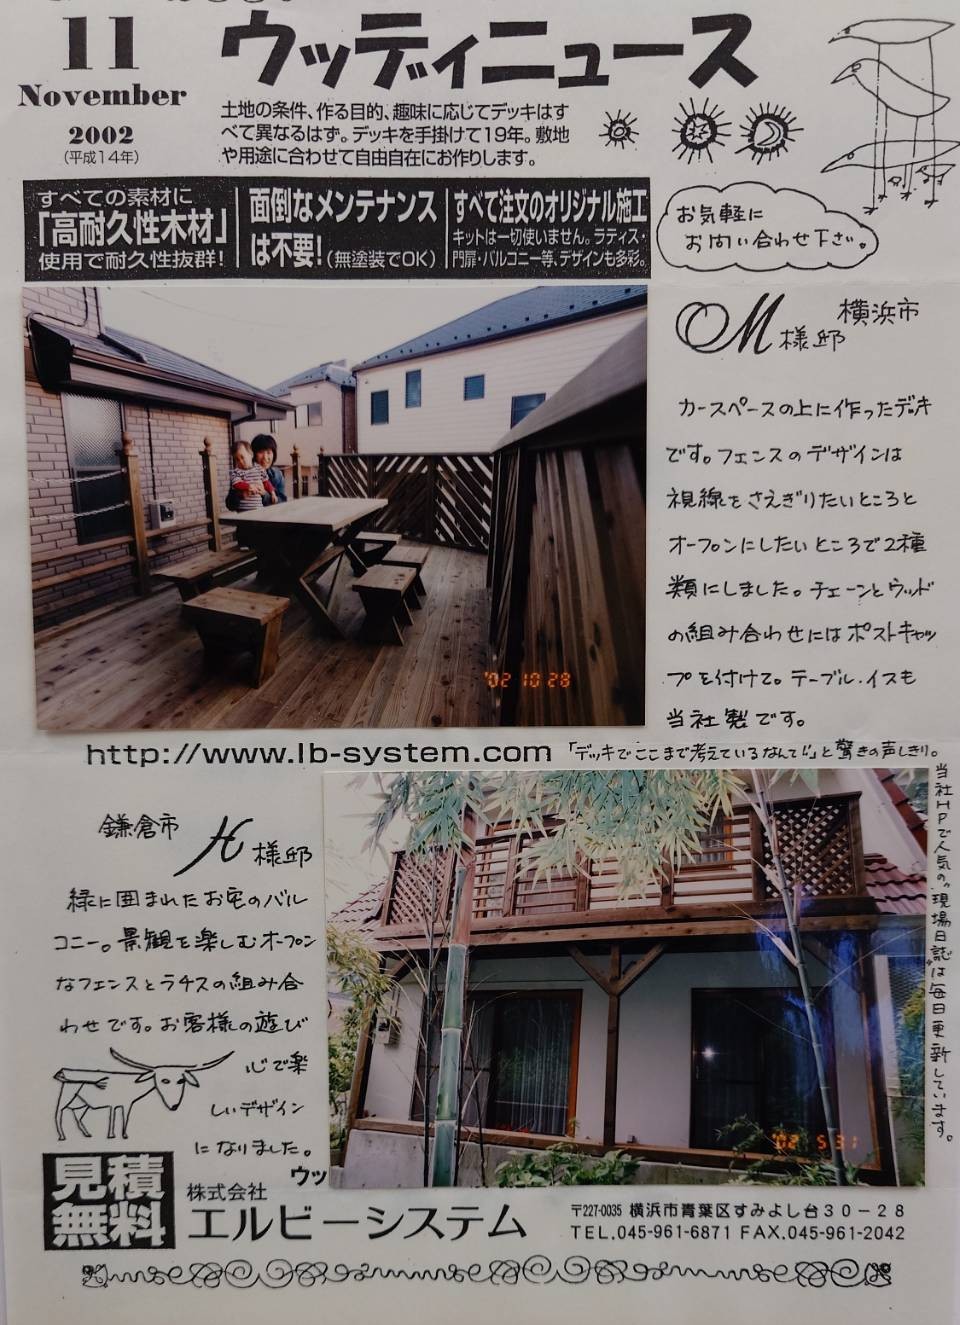 11
November
2002
(平成14年)
ウッディニュース
土地の条件、作る目的、趣味に応じてデッキはす
べて異なるはず。デッキを手掛けて19年。敷地
や用途に合わせて自由自在にお作りします。
すべての素材に
「高耐久性木材」
使用で耐久性抜群!
面倒なメンテナンス
は不要!(無塗装でOK)
すべて注文のオリジナル施工
キットは一切使いません。ラティス・
門扉・バルコニー等、デザインも多彩。
お気軽に
お問い合わせ下さい。
M様邸 横浜市
カースペースの上に作ったデッキ
です。フェンスのデザインは
視線をさえぎりたいところと
オープンにしたいところで2種
類にしました。チェーンとウッド
の組み合わせにはポストキャッ
プを付けて。テーブル・イスも
当社製です。
'02 10 28
http://www.lb-system.com
「デッキでここまで考えているなんて!」と驚きの声しきり。
当社HPで人気の"現場日誌"は毎日更新しています。
鎌倉市
H様邸
緑に囲まれたお宅のバル
コニー。景観を楽しむオープン
なフェンスとラチスの組み合
わせです。お客様の遊び
心で楽
しいデザイン
になりました。
'02 5 31
見積
無料
ウッ
株式会社
エルビーシステム
〒227-0035 横浜市青葉区すみよし台30-28
TEL.045-961-6871 FAX.045-961-2042